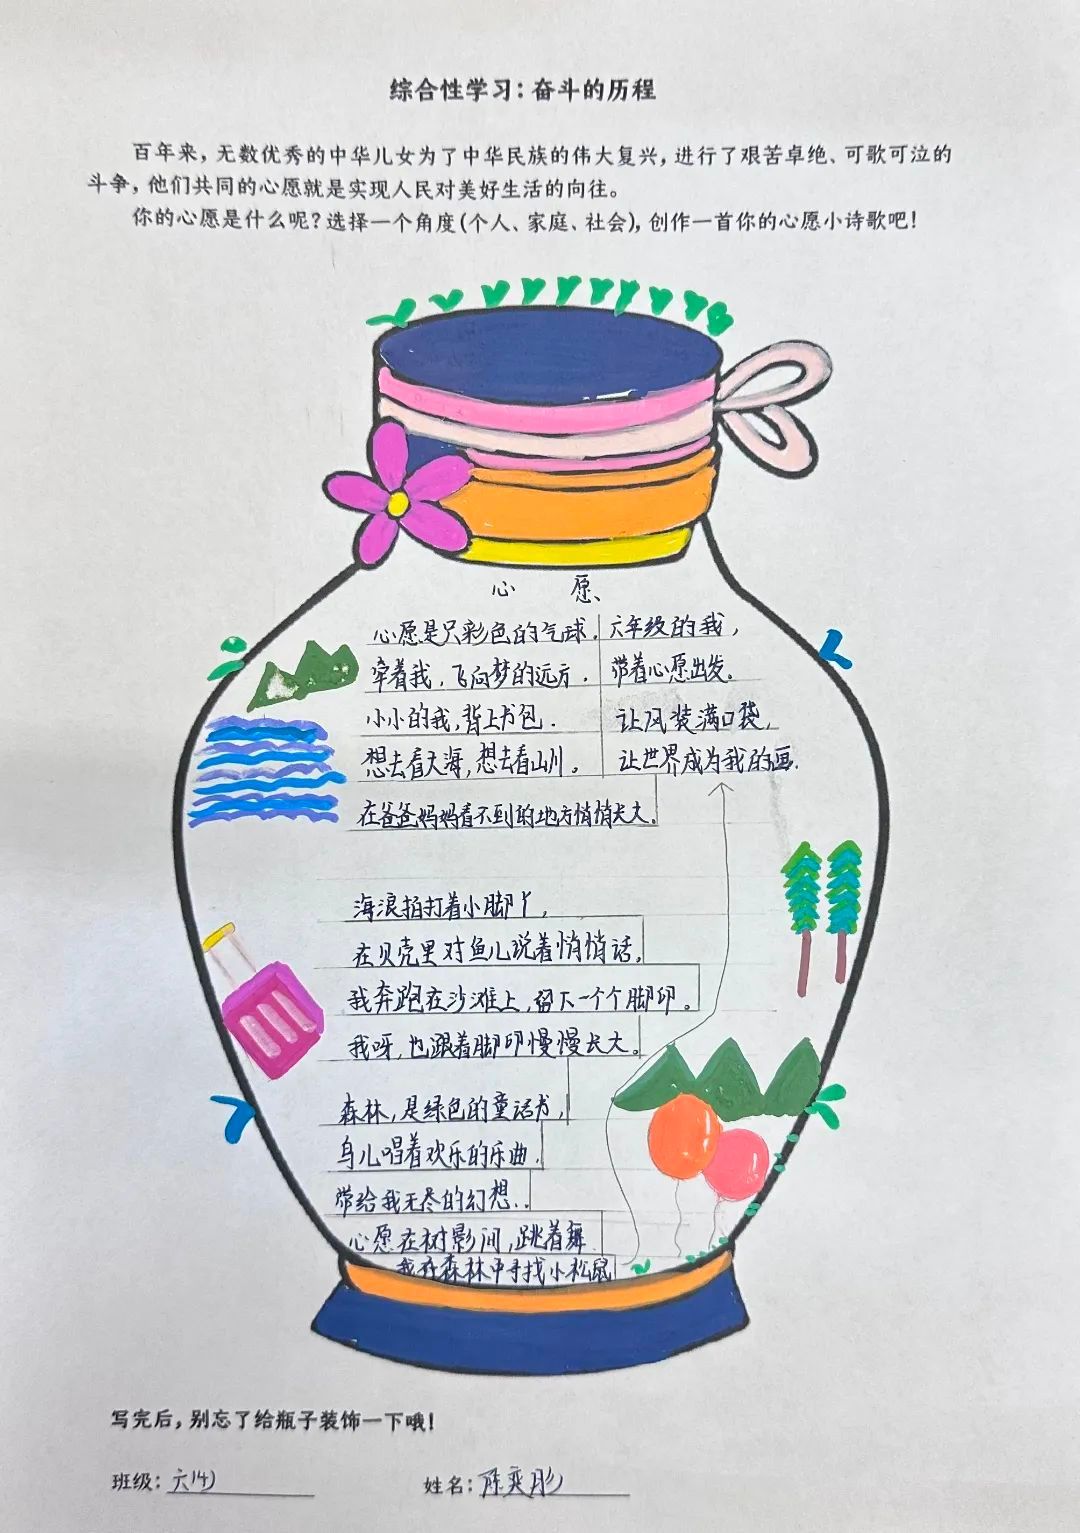 综合性学习：奋斗的历程
百年来，无数优秀的中华儿女为了中华民族的伟大复兴，进行了艰苦卓绝、可歌可泣的
斗争，他们共同的心愿就是实现人民对美好生活的向往。
你的心愿是什么呢？选择一个角度（个人、家庭、社会），创作一首你的心愿小诗歌吧！
心愿
心愿是只彩色的气球，
牵着我，飞向梦的远方．
小小的我，背上书包．
想去看大海，想去看山川。
在爸爸妈妈看不到的地方悄悄长大．
海浪拍打着小脚丫，
在贝壳里对鱼儿说着悄悄话，
我奔跑在沙滩上，留下一个个脚印。
我呀，也跟着脚印慢慢长大。
森林，是绿色的童话书，
鸟儿唱着欢乐的乐曲．
带给我无尽的幻想．．
心愿在树影间，跳着舞
我在森林中寻找小松鼠
六年级的我，
带着心愿出发．
让风装满口袋，
让世界成为我的画．
写完后，别忘了给瓶子装饰一下哦！
班级：六(4)
姓名：陈奕彤